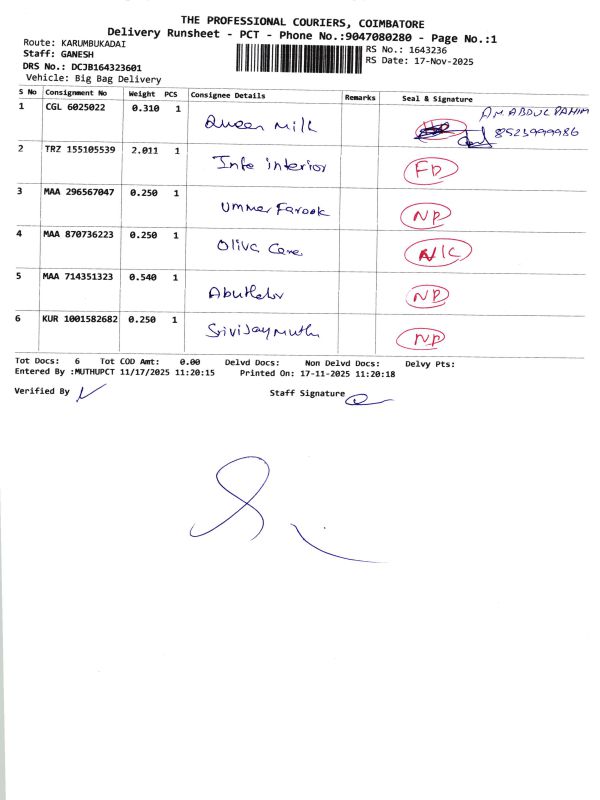 THE PROFESSIONAL COURIERS, COIMBATORE
Delivery Runsheet - PCT - Phone No.:9047080280 - Page No.:1
Route: KARUMBUKADAI
Staff: GANESH
DRS No.: DCJB164323601
Vehicle: Big Bag Delivery
RS No.: 1643236
RS Date: 17-Nov-2025
S No Consignment No Weight PCS Consignee Details Remarks Seal & Signature
1 CGL 6025022 0.310 1 Queen Milk A.M ABDUL RAHIM
8523999986
2 TRZ 155105539 2.011 1 Info interior FD
3 MAA 296567047 0.250 1 Ummer Farook NP
4 MAA 870736223 0.250 1 Oliva Care N/C
5 MAA 714351323 0.540 1 NP
6 KUR 1001582682 0.250 1 Srivijaymuth NP
Tot Docs: 6 Tot COD Amt: 0.00 Delvd Docs: Non Delvd Docs: Delvy Pts:
Entered By :MUTHUPCT 11/17/2025 11:20:15 Printed On: 17-11-2025 11:20:18
Verified By Staff Signature